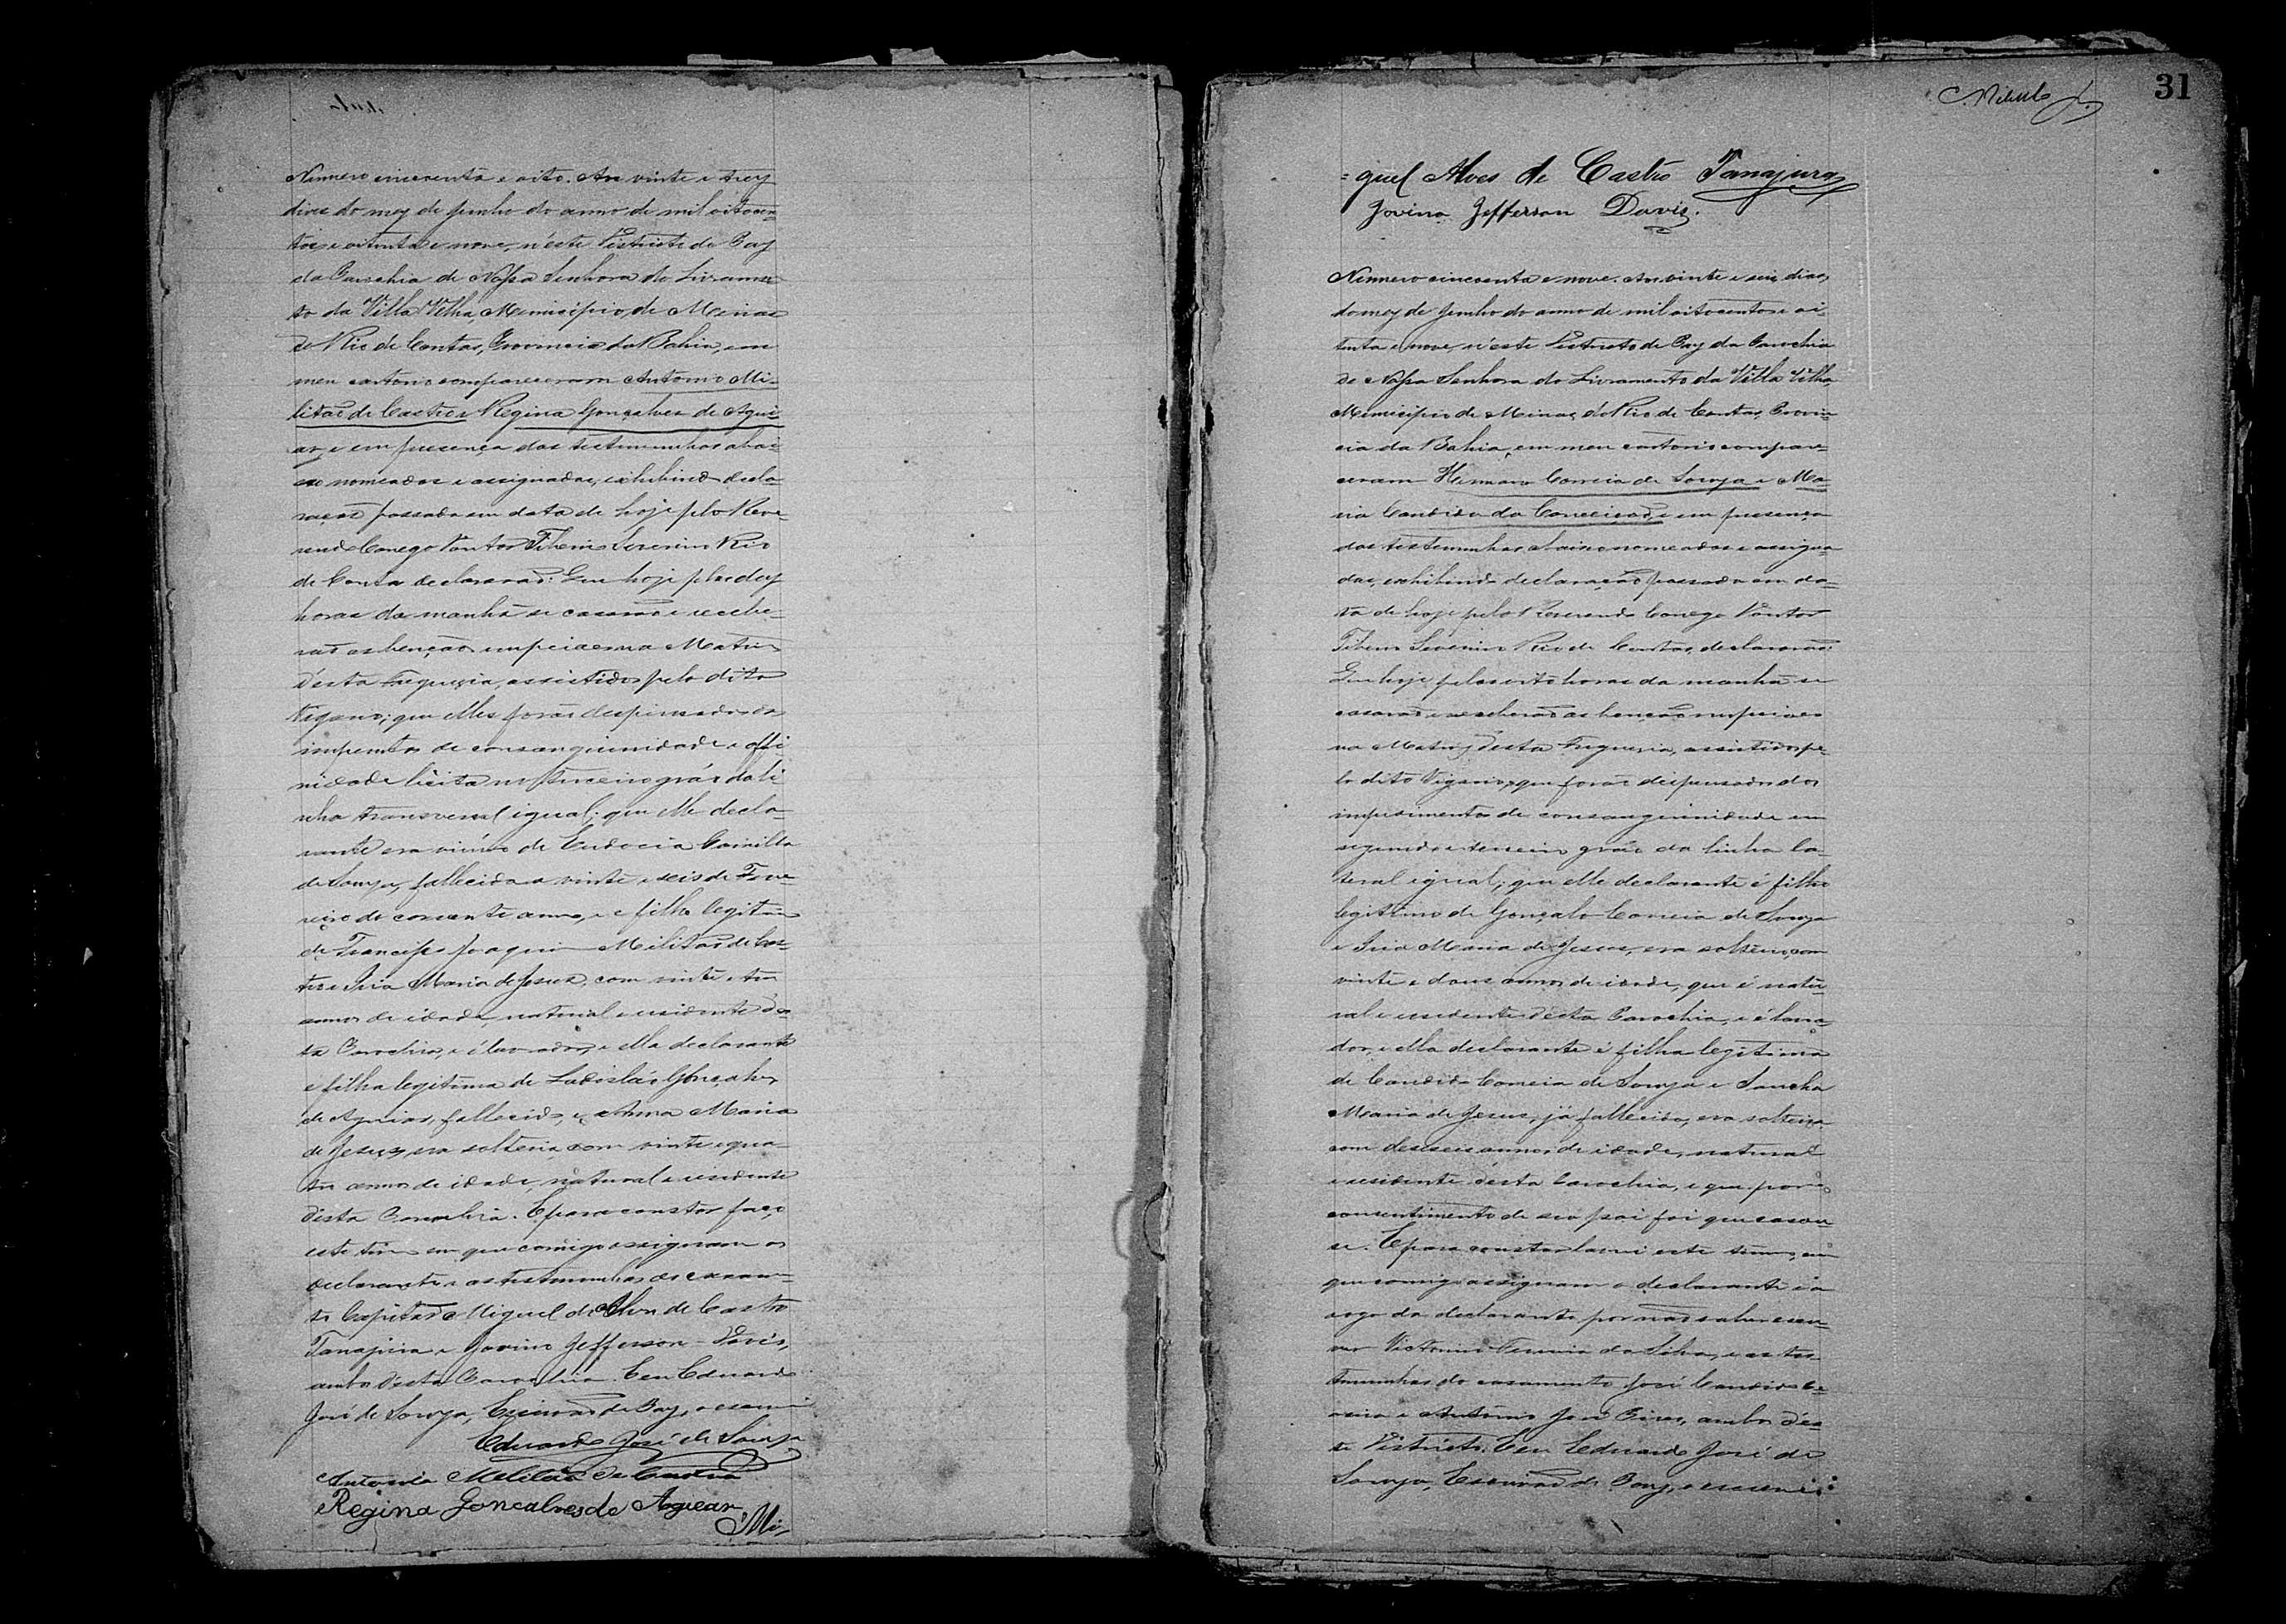 Numero cincoenta e oito. Aos vinte e trez
dias do mez de Junho do anno de mil oitocen-
tos e oitenta e nove, n'este Districto de Paz
da Parochia de Nossa Senhora do Livramen-
to da Villa Velha, Municipio de Minas
do Rio de Contas, Provincia da Bahia, em
meu cartorio compareceram Antonio Mi-
litão de Castro e Regina Gonçalves de Agui-
ar, e em presença das testemunhas abai-
xo nomeadas e assignadas, exhibindo decla-
ração passada em data de hoje pelo Reve-
rendo Conego Tiberio Severino Rio
de Contas declararão: Que hoje pelas dez
horas da manhã se casarão e recebe-
rão as benções nupciaes na Matriz
d'esta Freguezia, assistidos pelo dito
Vigario; que elles forão dispensados do
impemto de consanguinidade e affi
nidade licita no terceiro gráo da li
nha transversal igual; que elle decla-
rante era viuvo de Eudocia Camilla
de Souza, fallecida a vinte e seis de Feve-
reiro do corrente anno, e é filho legitimo
de Francisco Joaquim Militão de Cas-
tro e Iria Maria de Jesus, com vinte e tres
annos de idade, natural e residente des-
ta Parochia, e é lavrador, e ella declarante
é filha legitima de Ladisláo Gonçalves
de Aguiar, fallecido, e Anna Maria
de Jesus, era solteira, com vinte e qua-
tro annos de idade, natural e residente
d'esta Parochia. E para constar faço
este têrmo em que comigo assignaram os
declarantes e as testemunhas do casamen-
to Capitão Miguel de Alves de Castro
Tanajura e Jovino Jefferson Davis,
ambos d'esta Parochia. Eu Eduardo
José de Souza, Escrivão de Paz, o escrevi
Eduardo José de Souza
Antonio Militão de Castro
Regina Goncalves de Aguear
Mi-
31
=guel Alves de Castro Tanajura
Jovino Jefferson Davis.
Numero cincoenta e nove. Aos vinte e seis dias
do mez de Junho do anno de mil oitocentos e oi-
tenta e nove, n'este Districto de Paz da Parochia
de Nossa Senhora do Livramento da Villa Velha,
Municipio de Minas do Rio de Contas, Provin-
cia da Bahia, em meu cartorio compare-
ceram Correia de Souza e Ma-
ria Candida da Conceição, e em presença
das testemunhas abaixo nomeadas e assigna-
das, exhibindo declaração passada em da-
ta de hoje pelo Reverendo Conego
Tiberio Severino Rio de Contas, declararão:
Que hoje pelas oito horas da manhã se
casarão e receberão as benções nupciaes
na Matriz desta Freguezia, assistidos pe-
lo dito Vigario, que forão dispensados dos
impedimentos de consanguinidade em
segundo e terceiro gráo da linha la-
teral igual; que elle declarante é filho
legitimo de Gonçalo Correia de Souza
e Iria Maria de Jesus, era solteiro, com
vinte e dous annos de idade, que é natu-
ral e residente d'esta Parochia, e é lavra-
dor, e ella declarante é filha legitima
de Candido Correia de Souza e Sancha
Maria de Jesus, já fallecida, era solteira
com deseseis annos de idade, natural
e residente d'esta Parochia, e que por
consentimento de seo pai foi que casou-
se. E para constar lavrei este têrmo, em
que comigo assignam o declarante e a
rogo da declarante por não saber escre-
ver Victorino Ferreira da Silva, e as tes-
temunhas do casamento José Candido
e Antonio José Pires, ambos d'es-
te Districto. Eu Eduardo José de
Souza, Escrivão de Paz, o escrevi.